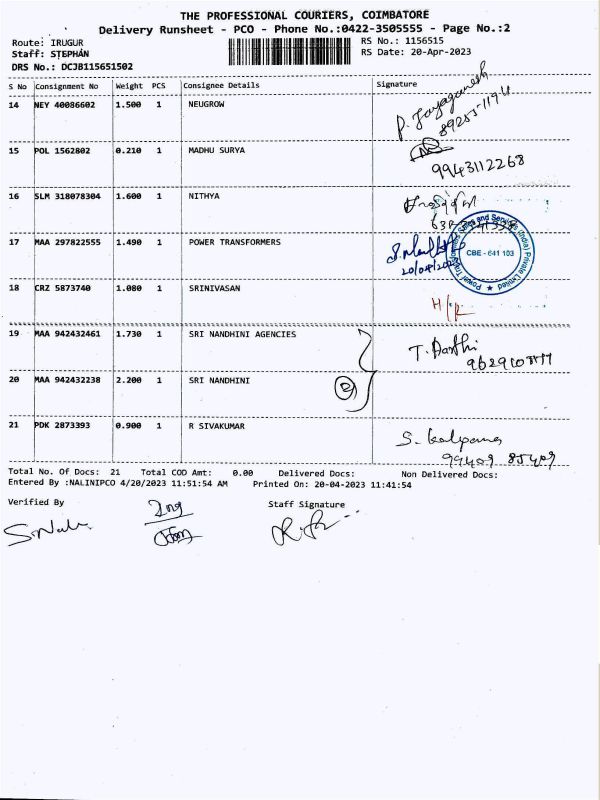 THE PROFESSIONAL COURIERS, COIMBATORE
Delivery Runsheet - PCO - Phone No.:0422-3505555 - Page No.:2
Route: IRUGUR
RS No.: 1156515
Staff: STEPHAN
RS Date: 20-Apr-2023
DRS No.: DCJB115651502
S No Consignment No Weight PCS Consignee Details Signature
14 NEY 40086602 1.500 1 NEUGROW
P. Jayaganesh
15 POL 1562802 0.210 1 MADHU SURYA
9943112268
16 SLM 318078304 1.600 1 NITHYA
17 MAA 297822555 1.490 1 POWER TRANSFORMERS
20/04/2023
CBE - 641 103
18 CRZ 5873740 1.080 1 SRINIVASAN
H/R
19 MAA 942432461 1.730 1 SRI NANDHINI AGENCIES
T. Aarthi
20 MAA 942432238 2.200 1 SRI NANDHINI
2
21 PDK 2873393 0.900 1 R SIVAKUMAR
S. Kalpana
99409 85409
Total No. Of Docs: 21 Total COD Amt: 0.00 Delivered Docs: Non Delivered Docs:
Entered By :NALINIPCO 4/20/2023 11:51:54 AM Printed On: 20-04-2023 11:41:54
Verified By Staff Signature